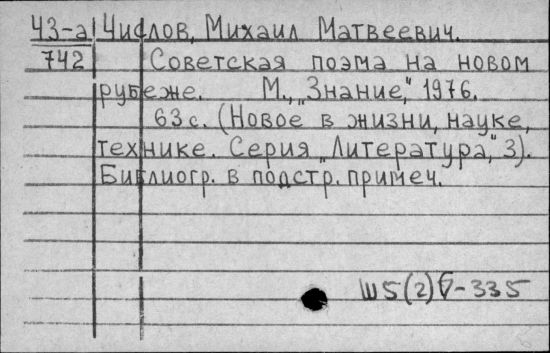 43-а Числов, Михаил Матвеевич.
742 Советская поэма на новом
рубеже. М., „Знание,“ 1976.
63 с. (Новое в жизни, науке,
технике. Серия „Литература,“ 3).
Библиогр. в подстр. примеч.